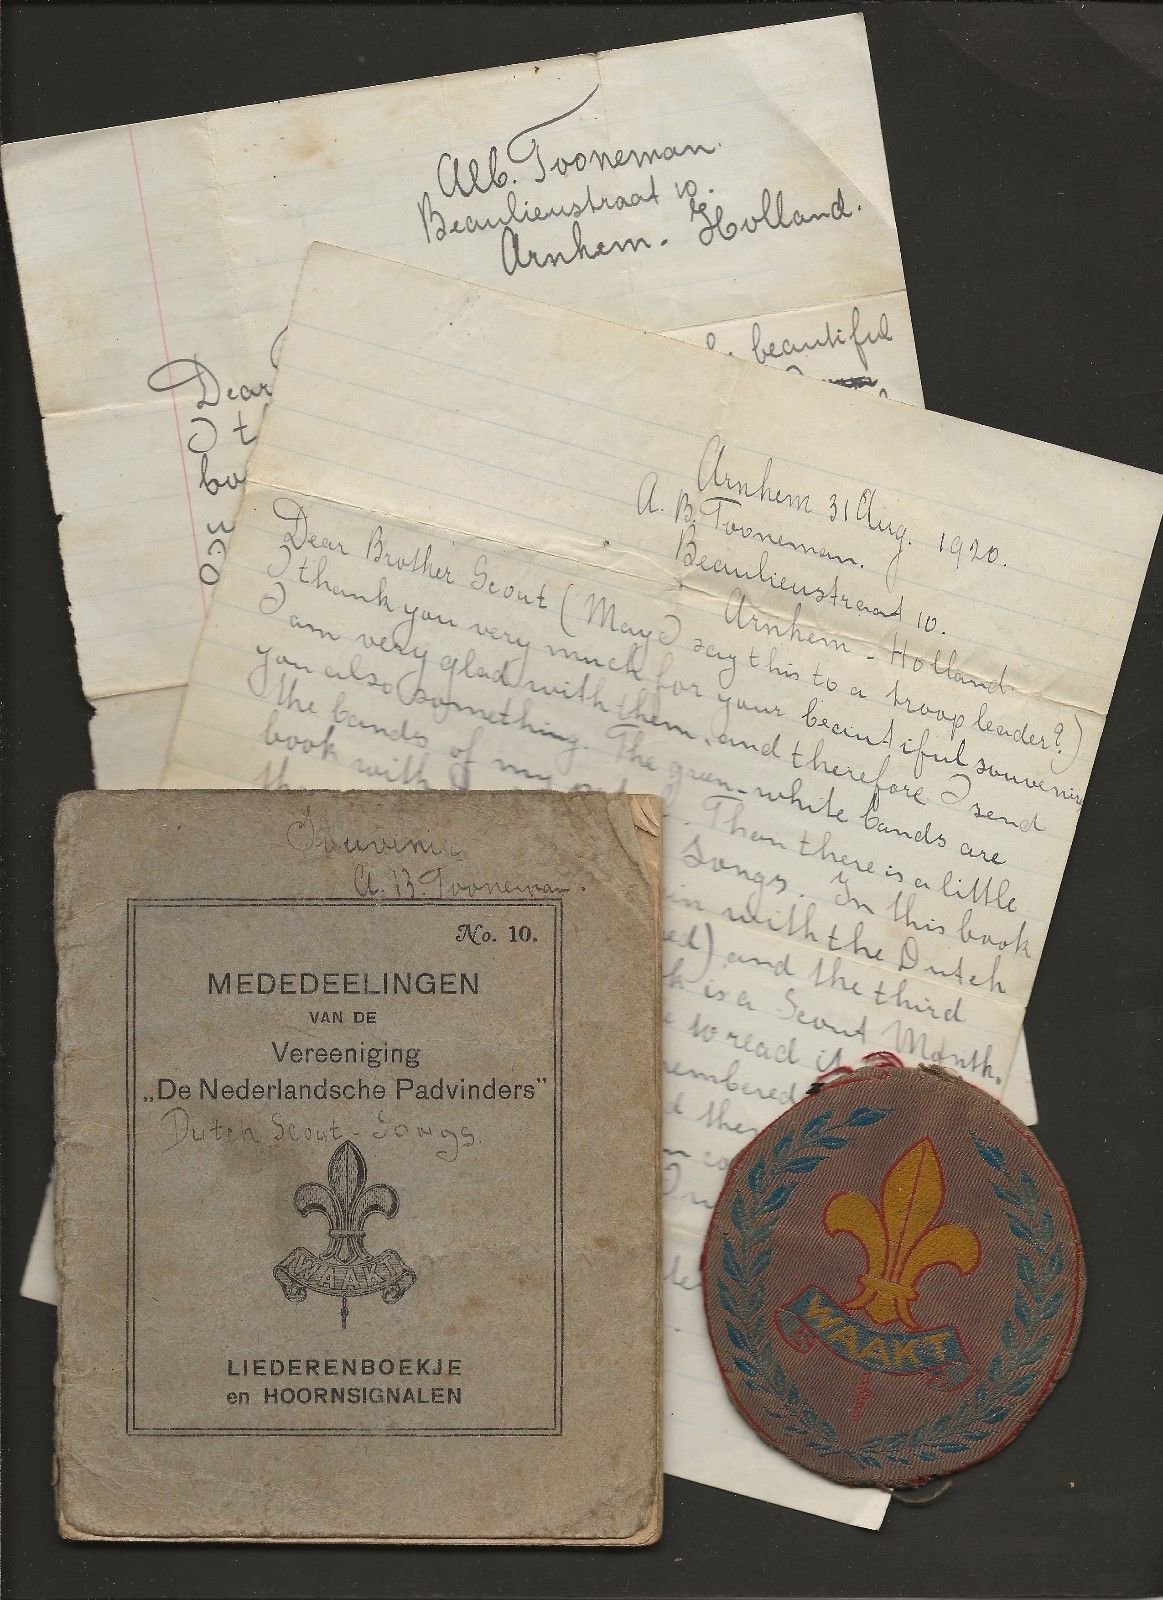 Alb. Tooneman.
Beaulieustraat 10.
Arnhem - Holland.
beautiful
Dear
I t
bo
Arnhem 31 Aug. 1920.
A. B. Tooneman.
Beaulieustraat 10.
Arnhem - Holland.
Dear Brother Scout (May I say this to a troopleader?)
I thank you very much for your beautiful souvenirs
I am very glad with them, and therefore I send
you also something. The green-white bands are
the bands of my. Then there is a little
book with songs. In this book
in with the Dutch
ed) and the third
k is a Scout Month.
to read it
membered
d the
Souvenir
A. B. Tooneman.
No. 10.
MEDEDEELINGEN
VAN DE
Vereeniging
„De Nederlandsche Padvinders”
Dutch Scout-Songs.
WAAKT
LIEDERENBOEKJE
en HOORNSIGNALEN
WAAKT